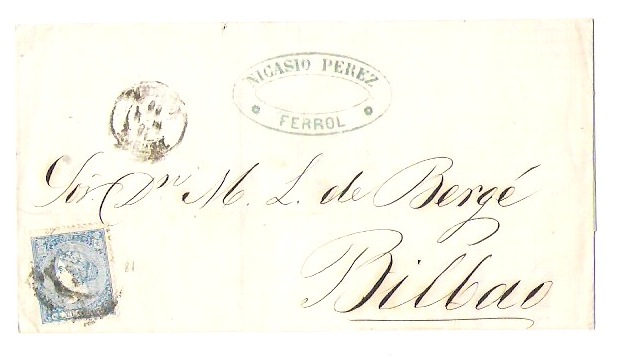 NICASIO PEREZ
FERROL
Sor. Dn. M. L. de Bergé
Bilbao